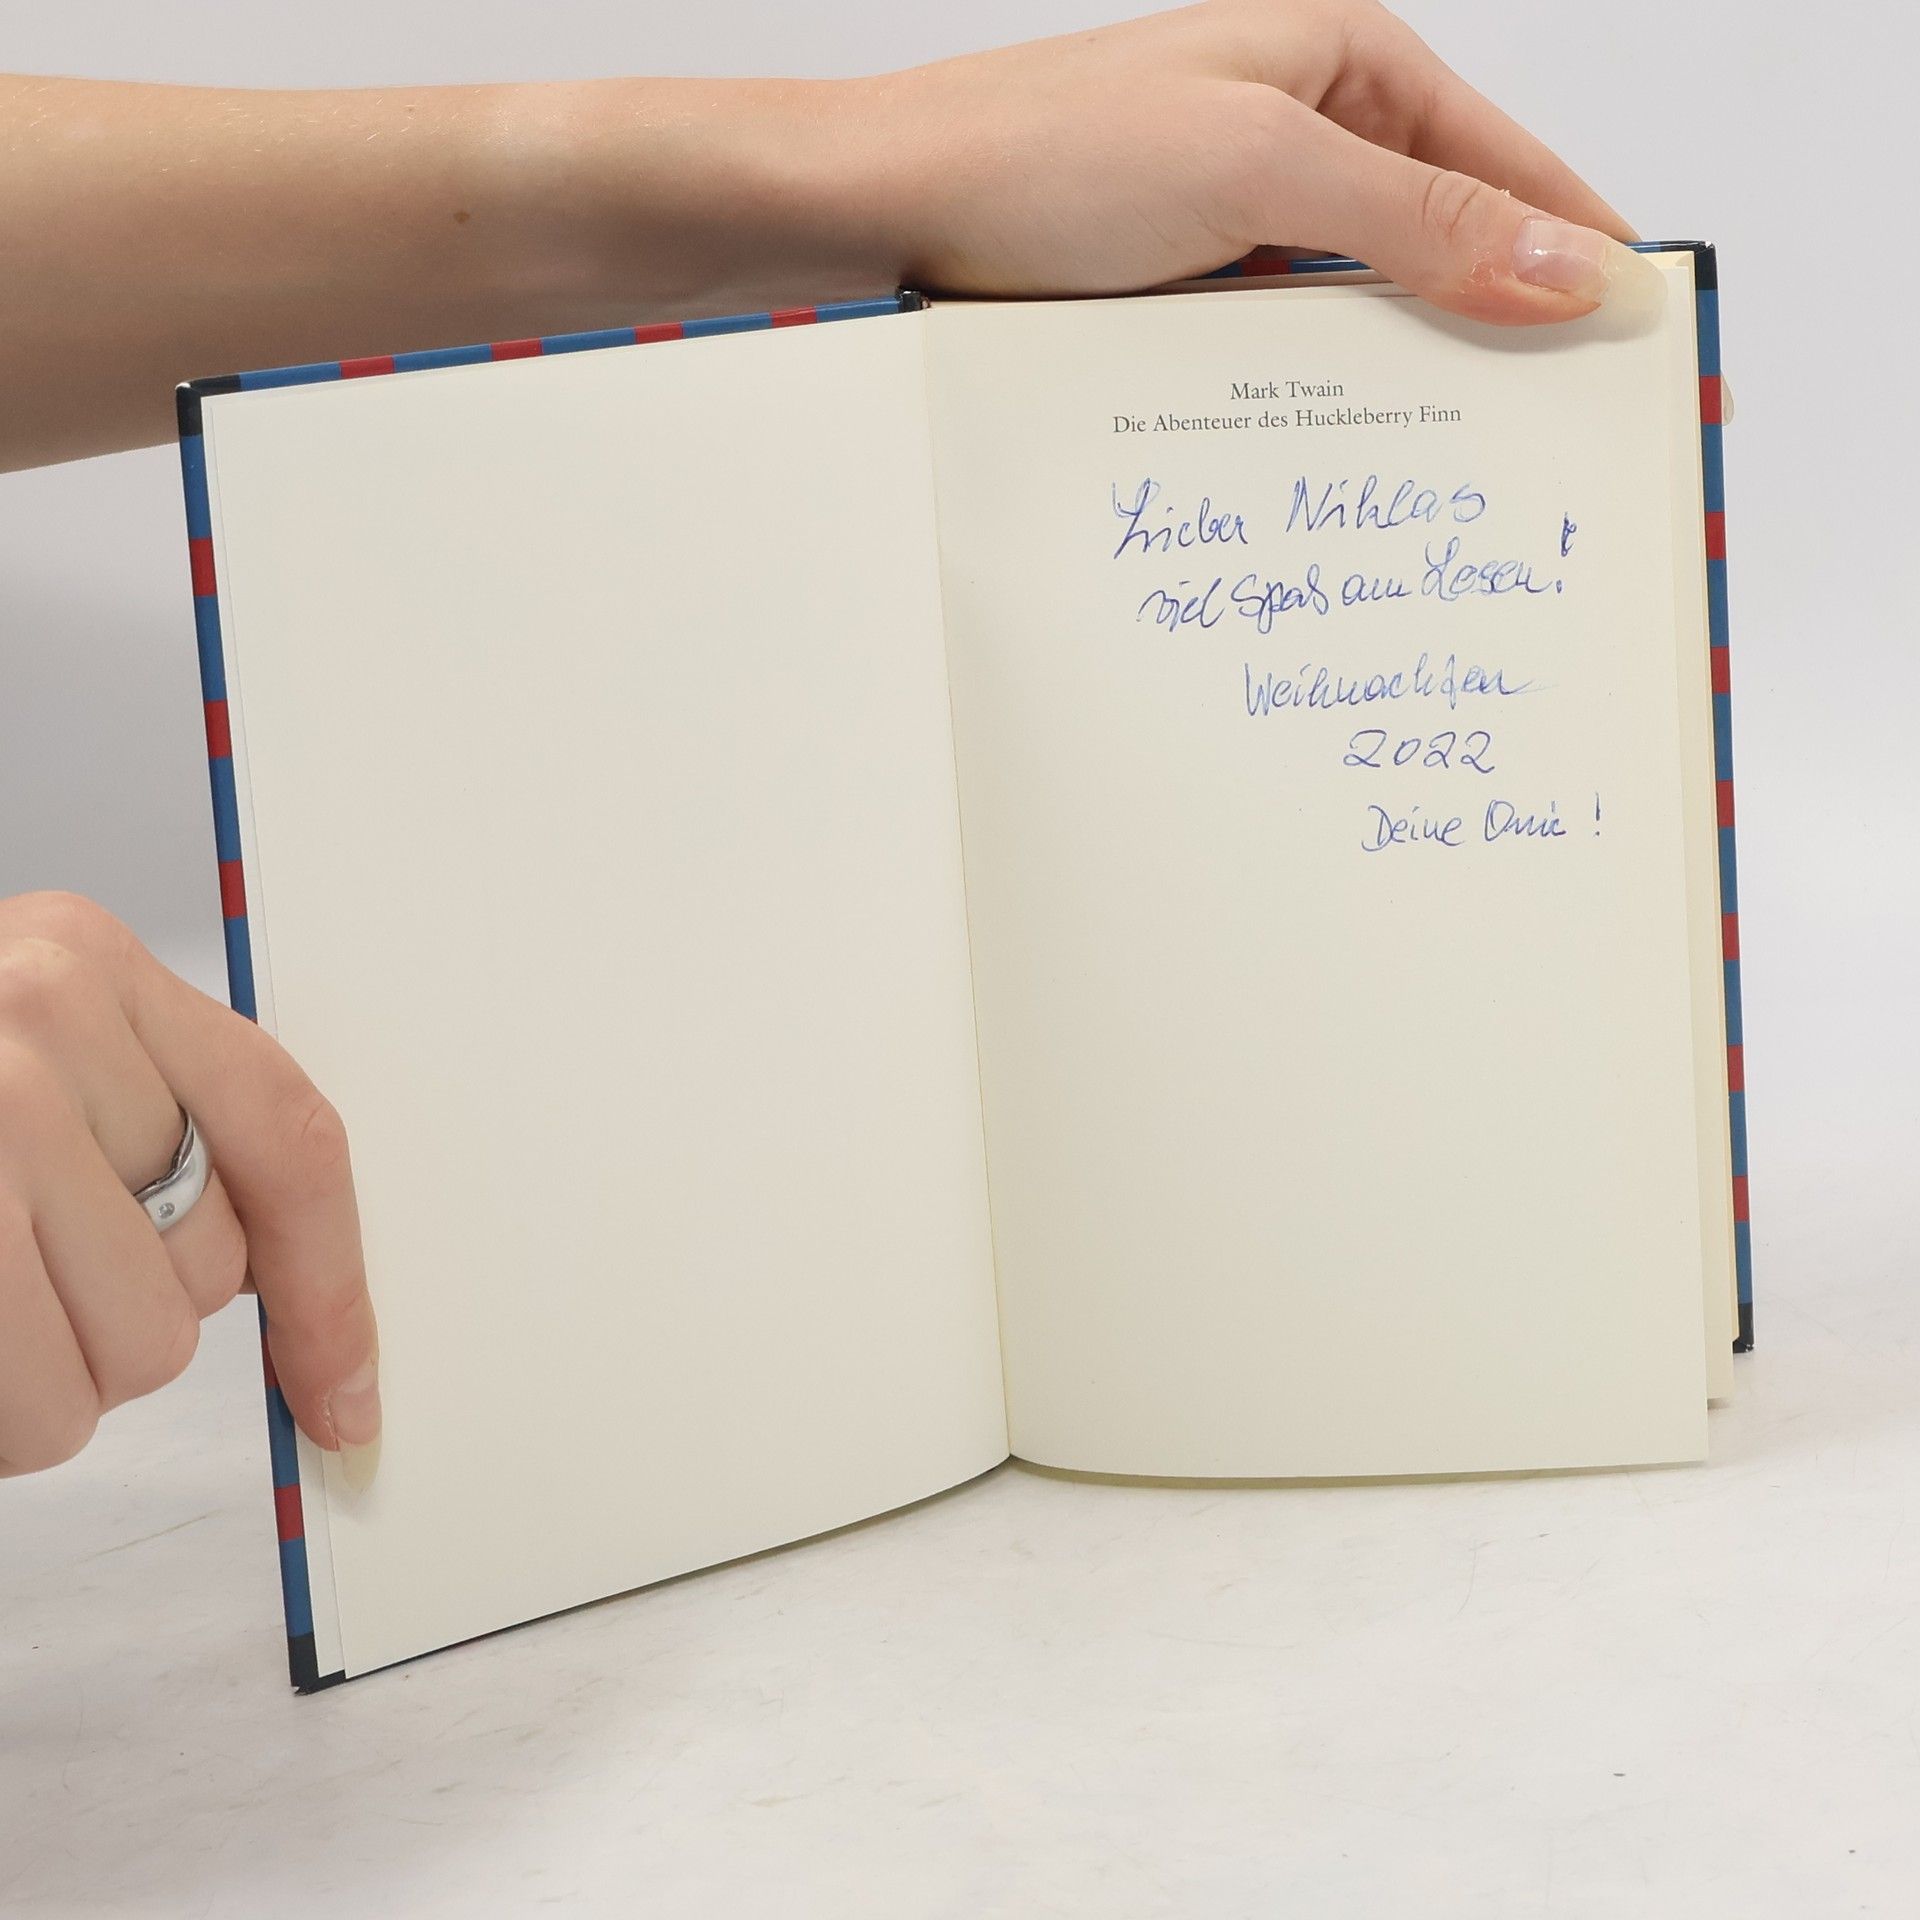 Mark Twain
Die Abenteuer des Huckleberry Finn
Lieber Niklas
viel Spaß am Lesen!
Weihnachten
2022
Deine Omi !